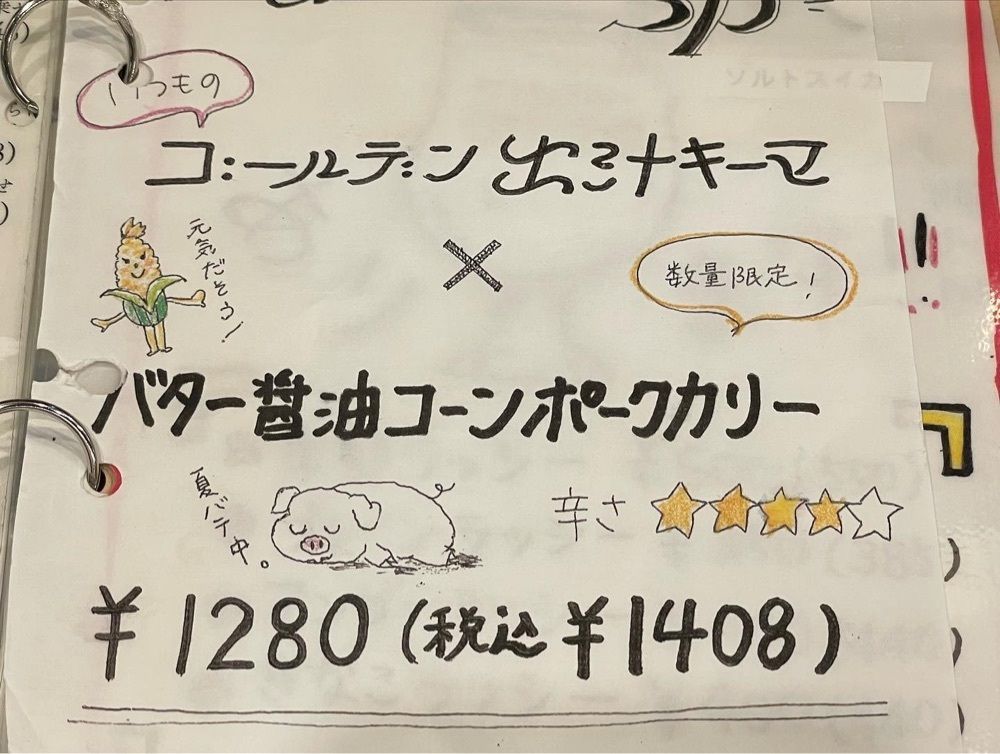 いつもの
ゴールデン出汁キーマ
×
元気だそう!
数量限定!
バター醤油コーンポークカリー
夏バテ中。
辛さ ★★★★☆
¥1280(税込¥1408)
ソルトスイカ